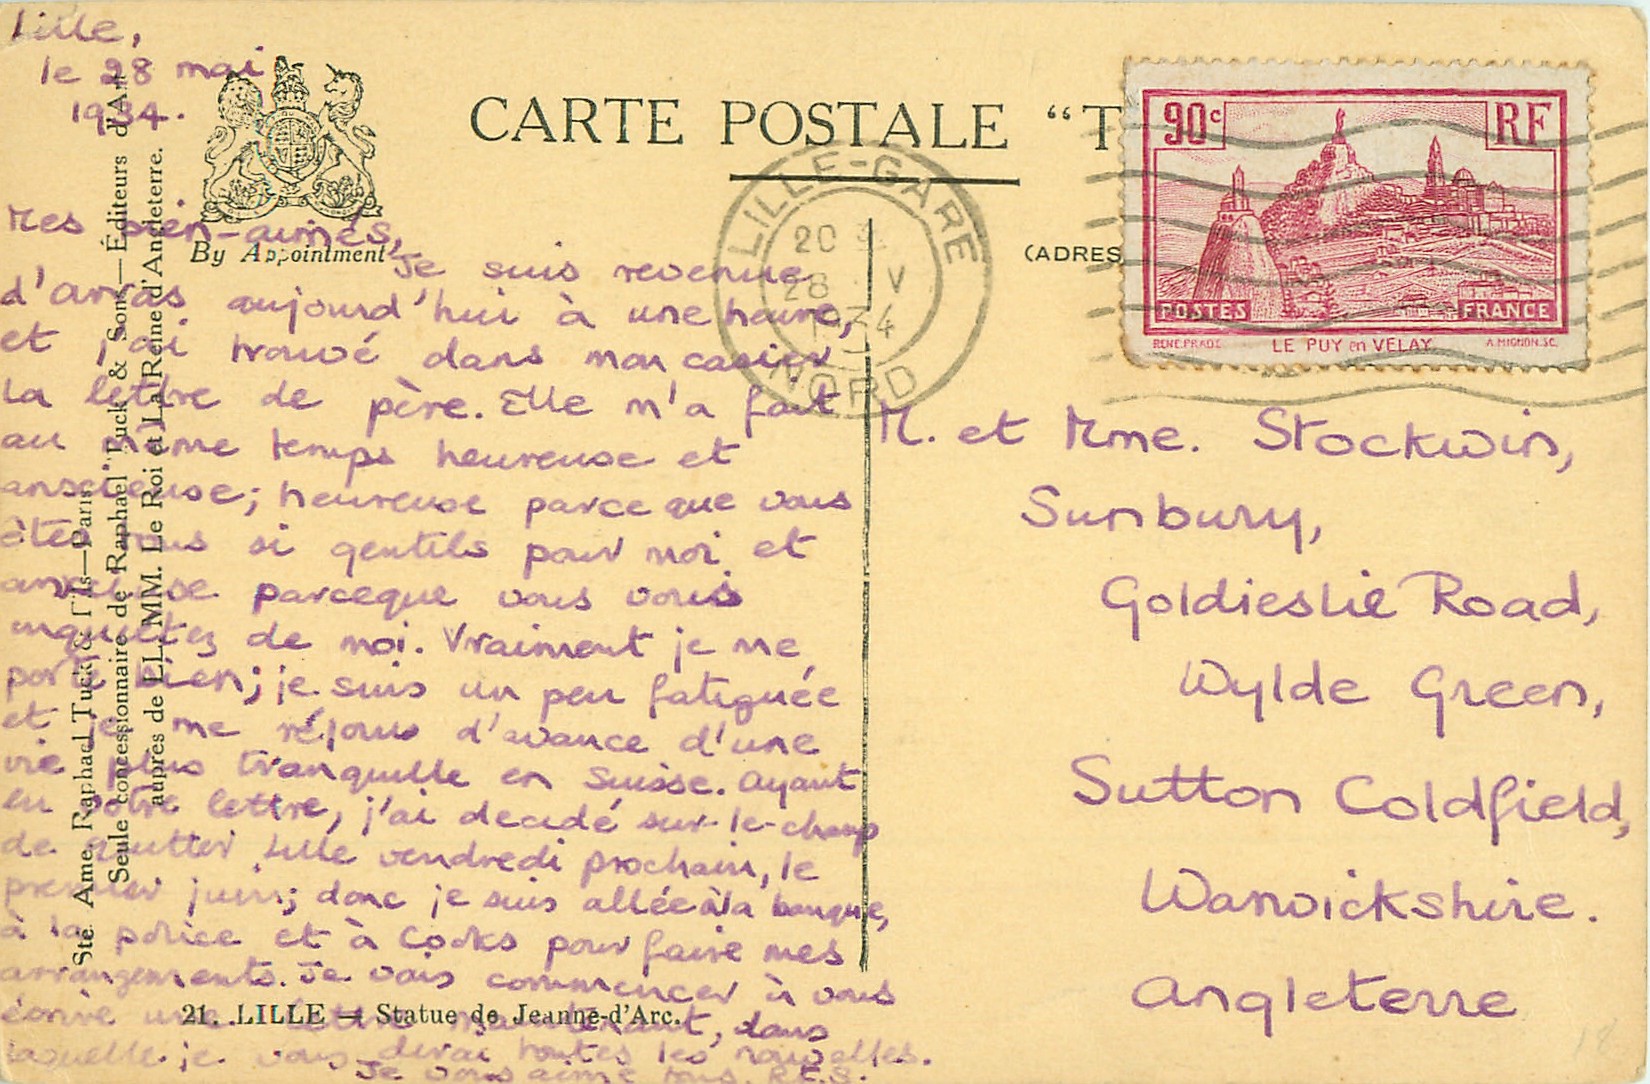 Lille,
le 28 mai
1934.
By Appointment
CARTE POSTALE "T
(ADRES
LILLE-GARE
20
28 V
1934
NORD
90c
RF
POSTES
FRANCE
RENE.PRADE
LE PUY en VELAY
A.MIGNON.SC.
Mes bien-aimés,
Je suis revenue
d'arras aujourd'hui à une heure,
et j'ai trouvé dans mon casier
la lettre de père. Elle m'a fait
au même temps heureuse et
anxieuse; heureuse parceque vous
êtes tous si gentils pour moi et
anxieuse parceque vous vous
inquiétez de moi. Vraiment je me
porte bien; je suis un peu fatiguée
et je me réjouis d'avance d'une
vie plus tranquille en Suisse. Ayant
lu votre lettre, j'ai decidé sur-le-champ
de quitter Lille vendredi prochain, le
premier juin; donc je suis allée à la banque,
à la police et à Cooks pour faire mes
arrangements. Je vais commencer à vous
écrire une lettre maintenant, dans
laquelle je vous dirai toutes les nouvelles.
Je vous aime tous. R.E.S.
M. et Mme. Stockwin,
Sunbury,
Goldieslie Road,
Wylde Green,
Sutton Coldfield,
Warwickshire.
Angleterre
21. LILLE — Statue de Jeanne-d'Arc.
Sté. Ame. Raphael Tuck & Fils—Paris
Seule concessionnaire de Raphael Tuck & Sons—Éditeurs d'Art
auprès de LL. MM. Le Roi et La Reine d'Angleterre.
18